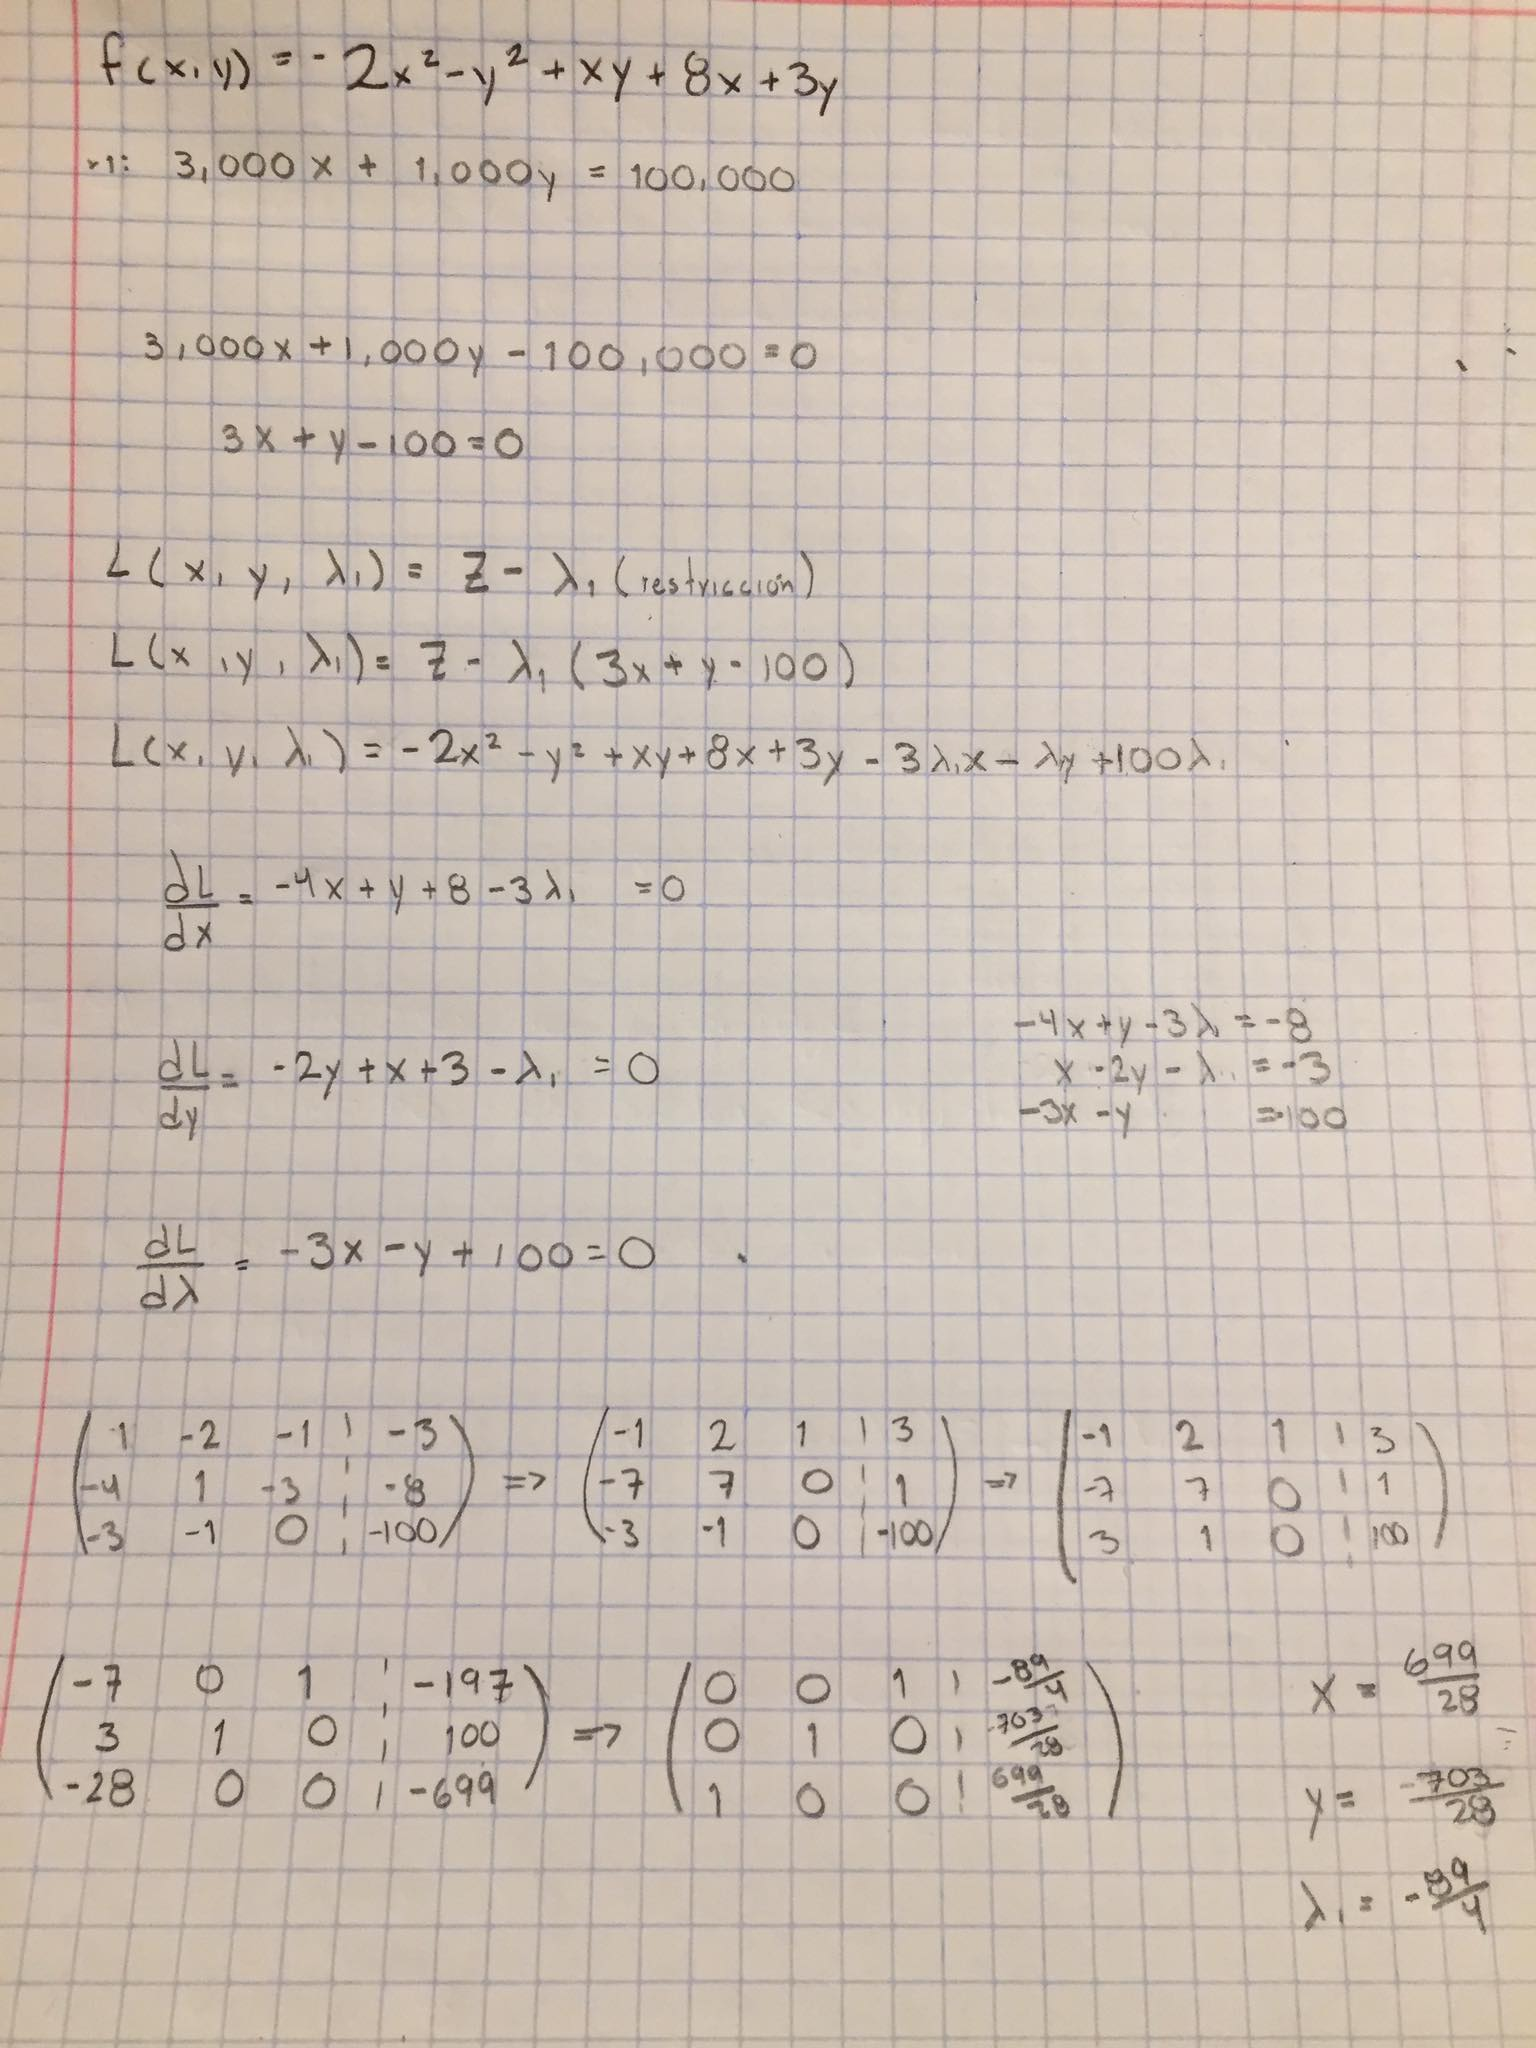 f(x, y) = -2x² - y² + xy + 8x + 3y
r1: 3,000x + 1,000y = 100,000
3,000x + 1,000y - 100,000 = 0
3x + y - 100 = 0
L(x, y, λ₁) = Z - λ₁ (restricción)
L(x, y, λ₁) = Z - λ₁ (3x + y - 100)
L(x, y, λ₁) = -2x² - y² + xy + 8x + 3y - 3λ₁x - λy + 100λ₁
dL/dx = -4x + y + 8 - 3λ₁ = 0
dL/dy = -2y + x + 3 - λ₁ = 0
-4x + y - 3λ = -8
x - 2y - λ₁ = -3
-3x - y = -100
dL/dλ = -3x - y + 100 = 0
( 1 -2 -1 ¦ -3 ) => ( -1 2 1 ¦ 3 ) => ( -1 2 1 ¦ 3 )
( -4 1 -3 ¦ -8 ) ( -7 7 0 ¦ 1 ) ( -7 7 0 ¦ 1 )
( -3 -1 0 ¦ -100 ) ( -3 -1 0 ¦ -100 ) ( 3 1 0 ¦ 100 )
( -7 0 1 ¦ -197 ) => ( 0 0 1 ¦ -89/4 )
( 3 1 0 ¦ 100 ) ( 0 1 0 ¦ 703/28 )
( -28 0 0 ¦ -699 ) ( 1 0 0 ¦ 699/28 )
x = 699/28
y = 703/28
λ₁ = -89/4